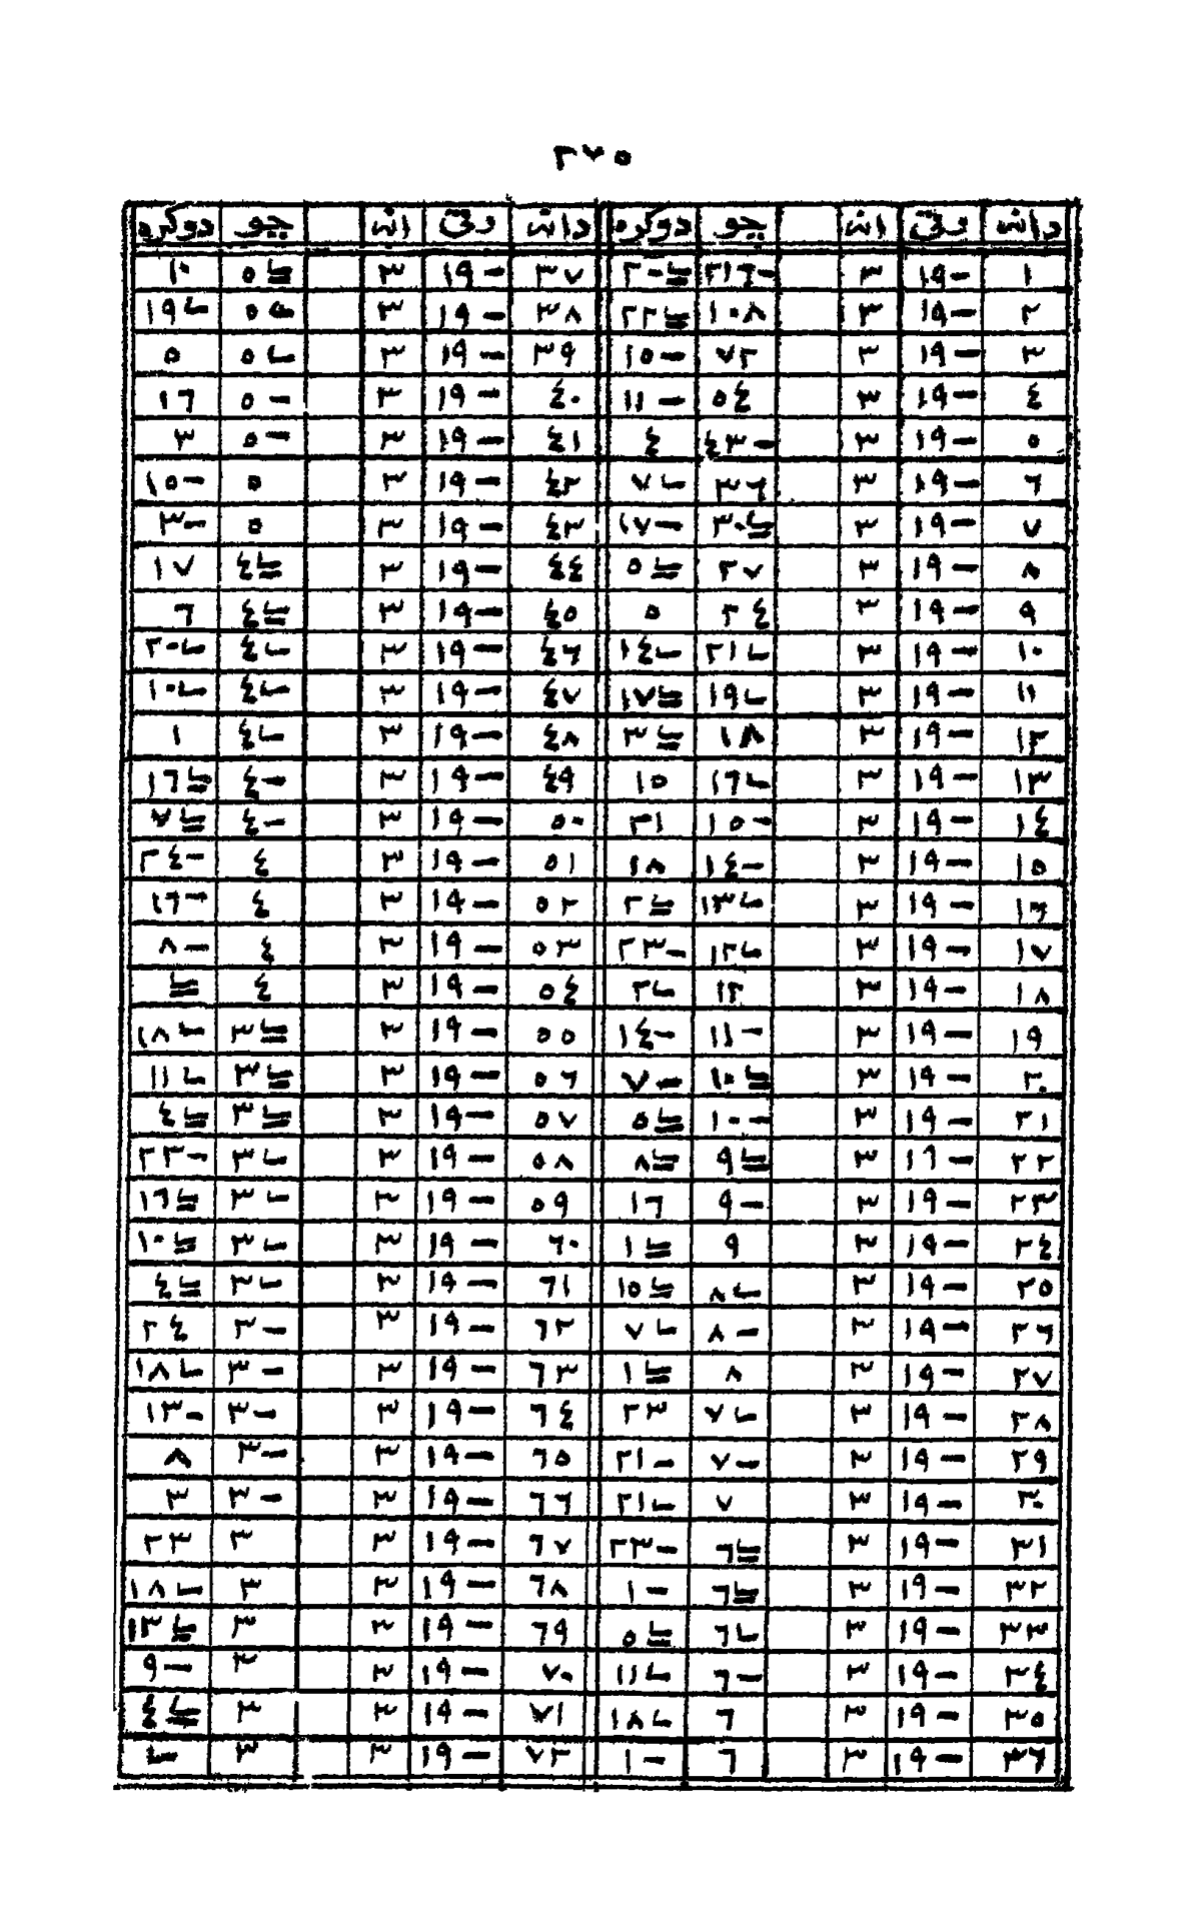 ٢٧٥
دانه رتي انه چو دوكره دانه رتي انه چو دوكره
١ -١٩ ٣ -٢١٦ ٢٠ ٣٧ -١٩ ٣ ٥ ١٠
٢ -١٩ ٣ ١٠٨ ٢٢ ٣٨ -١٩ ٣ ٥ ١٩
٣ -١٩ ٣ ٧٢ -١٥ ٣٩ -١٩ ٣ ٥ ٥
٤ -١٩ ٣ ٥٤ -١١ ٤٠ -١٩ ٣ -٥ ١٦
٥ -١٩ ٣ -٤٣ ٤ ٤١ -١٩ ٣ -٥ ٣
٦ -١٩ ٣ ٣٦ ٧ ٤٢ -١٩ ٣ ٥ -١٥
٧ -١٩ ٣ ٣٠ -١٧ ٤٣ -١٩ ٣ ٥ -٣
٨ -١٩ ٣ ٢٧ ٥ ٤٤ -١٩ ٣ ٤ ١٧
٩ -١٩ ٣ ٢٤ ٥ ٤٥ -١٩ ٣ ٤ ٦
١٠ -١٩ ٣ ٢١ ١٤ ٤٦ -١٩ ٣ ٤ ٢٠
١١ -١٩ ٣ ١٩ ١٧ ٤٧ -١٩ ٣ ٤ ١٠
١٢ -١٩ ٣ ١٨ ٣ ٤٨ -١٩ ٣ ٤ ١
١٣ -١٩ ٣ ١٦ ١٥ ٤٩ -١٩ ٣ -٤ ١٦
١٤ -١٩ ٣ -١٥ ٢١ ٥٠ -١٩ ٣ -٤ ٧
١٥ -١٩ ٣ -١٤ ١٨ ٥١ -١٩ ٣ ٤ -٢٤
١٦ -١٩ ٣ ١٣ ٢ ٥٢ -١٩ ٣ ٤ -١٦
١٧ -١٩ ٣ ١٢ -٢٣ ٥٣ -١٩ ٣ ٤ -٨
١٨ -١٩ ٣ ١٢ ٢ ٥٤ -١٩ ٣ ٤
١٩ -١٩ ٣ -١١ -١٤ ٥٥ -١٩ ٣ ٣ ١٨
٢٠ -١٩ ٣ ١٠ -٧ ٥٦ -١٩ ٣ ٣ ١١
٢١ -١٩ ٣ -١٠ ٥ ٥٧ -١٩ ٣ ٣ ٤
٢٢ -١٦ ٣ ٩ ٨ ٥٨ -١٩ ٣ ٣ -٢٣
٢٣ -١٩ ٣ -٩ ١٦ ٥٩ -١٩ ٣ ٣ ١٦
٢٤ -١٩ ٣ ٩ ١ ٦٠ -١٩ ٣ ٣ ١٠
٢٥ -١٩ ٣ ٨ ١٥ ٦١ -١٩ ٣ ٣ ٤
٢٦ -١٩ ٣ -٨ ٧ ٦٢ -١٩ ٣ -٣ ٢٤
٢٧ -١٩ ٣ ٨ ١ ٦٣ -١٩ ٣ -٣ ١٨
٢٨ -١٩ ٣ ٧ ٢٣ ٦٤ -١٩ ٣ -٣ -١٣
٢٩ -١٩ ٣ -٧ -٢١ ٦٥ -١٩ ٣ -٣ ٨
٣٠ -١٩ ٣ ٧ ٢١ ٦٦ -١٩ ٣ -٣ ٣
٣١ -١٩ ٣ ٦ -٢٣ ٦٧ -١٩ ٣ ٣ ٢٣
٣٢ -١٩ ٣ ٦ -١ ٦٨ -١٩ ٣ ٣ ١٨
٣٣ -١٩ ٣ ٦ ٥ ٦٩ -١٩ ٣ ٣ ١٣
٣٤ -١٩ ٣ -٦ ١١ ٧٠ -١٩ ٣ ٣ -٩
٣٥ -١٩ ٣ ٦ ١٨ ٧١ -١٩ ٣ ٣ ٤
٣٦ -١٩ ٣ ٦ -١ ٧٢ -١٩ ٣ ٣